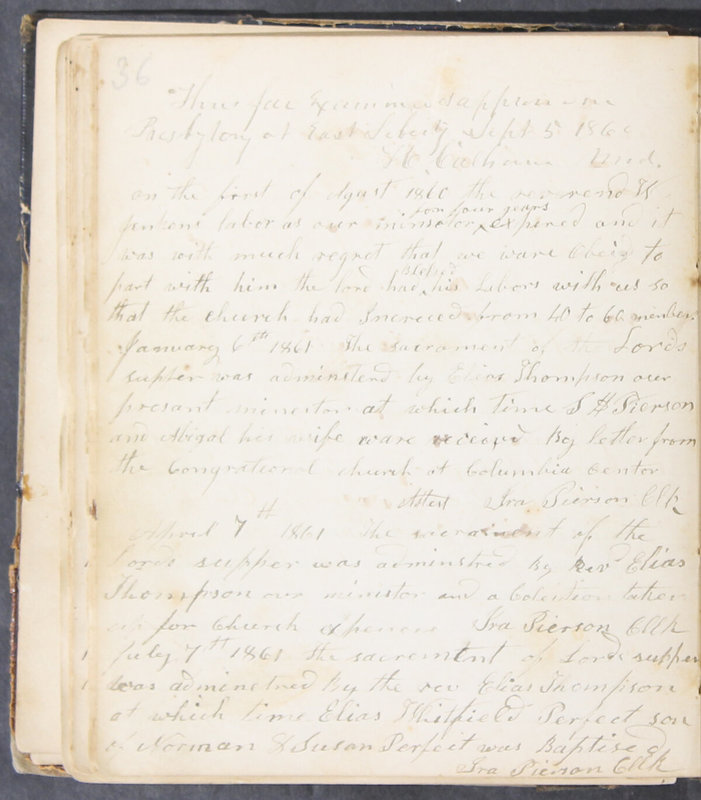 36
Thus far Examined & approved in
Presbytery at East Liberty Sept 5 1860
Calhoun Mod.
on the first of Agust 1860 the reverend W
penkens labor as our minsotor expired and it
for four years
was with much regret that we ware Obeig to
part with him the lord had his Labors with us so
Blesed
that the church had Increced from 40 to 60 member.
January 6th 1861 The sacrament of the Lords
supper was adminsterd by Elias Thompson our
presant minestor at which time S H Pierson
and Abigal his wife ware received By letter from
the Congrational church at Columbia Centor
Attest Ira Pierson Clk
April 7th 1861 The sacrament of the
Lords supper was adminstred By Revd Elias
Thompson our minister and a Colection taken
up for Church expences Ira Pierson Clk
July 7th 1861 the sacrement of Lords supper
was adminetred By the rev Elias Thompson
at which time Elias Whitfield Perfect son
of Norman & Susan Perfect was Baptised
Ira Pierson Clk